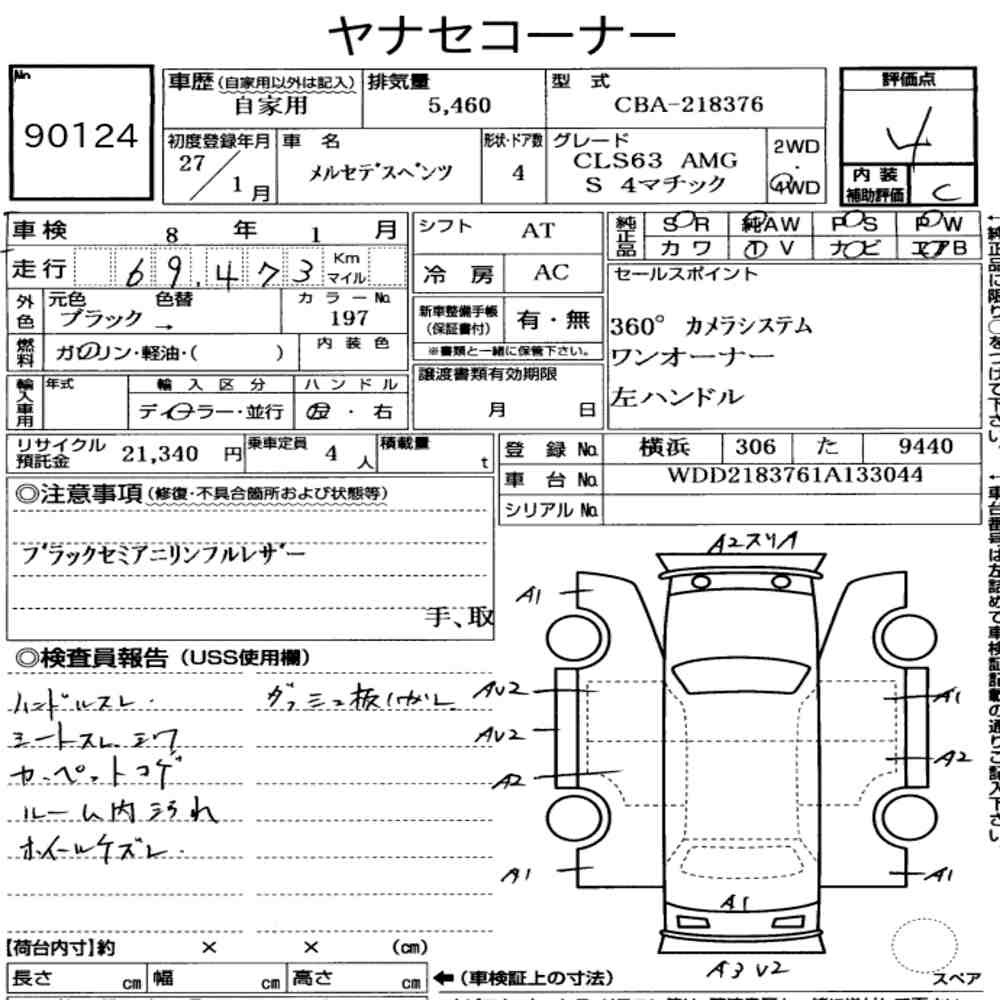 ヤナセコーナー
No.
90124
車歴(自家用以外は記入)
自家用
排気量
5,460
型 式
CBA-218376
評価点
4
初度登録年月
27/1月
車 名
メルセデスベンツ
形状・ドア数
4
グレード
CLS63 AMG
S 4マチック
2WD
・
4WD
内装
補助評価
C
車検 8 年 1 月
シフト
AT
純正品
SR 純AW PS PW
カワ TV ナビ エアB
走行 69,473 Km マイル
冷 房
AC
セールスポイント
360° カメラシステム
ワンオーナー
左ハンドル
外色
元色 色替
ブラック →
カラーNo.
197
新車整備手帳
(保証書付)
有・無
※書類と一緒に保管下さい。
燃料
ガソリン・軽油・( )
内装色
譲渡書類有効期限
月 日
輸入車用
年式
輸入区分
ディーラー・並行
ハンドル
左・右
リサイクル
預託金
21,340 円
乗車定員
4 人
積載量
t
登 録 No.
横浜 306 た 9440
車 台 No.
WDD2183761A133044
シリアル No.
◎注意事項(修復・不具合箇所および状態等)
ブラックセミアニリンフルレザー
手、取
◎検査員報告(USS使用欄)
ハンドルスレ.
シートスレ.シワ
カーペットコゲ
ルーム内汚れ
ホイールケズレ.
ダッシュ板ハガレ
A2スリA
A1
AU2
AU2
A2
A1
A1
A2
A1
A1
A3 U2
スペア
【荷台内寸】約 × × (cm)
長さ cm 幅 cm 高さ cm
←(車検証上の寸法)
←純正品に限り○をつけて下さい。
←車台番号は左詰めで車検証記載の通りご記入下さい。